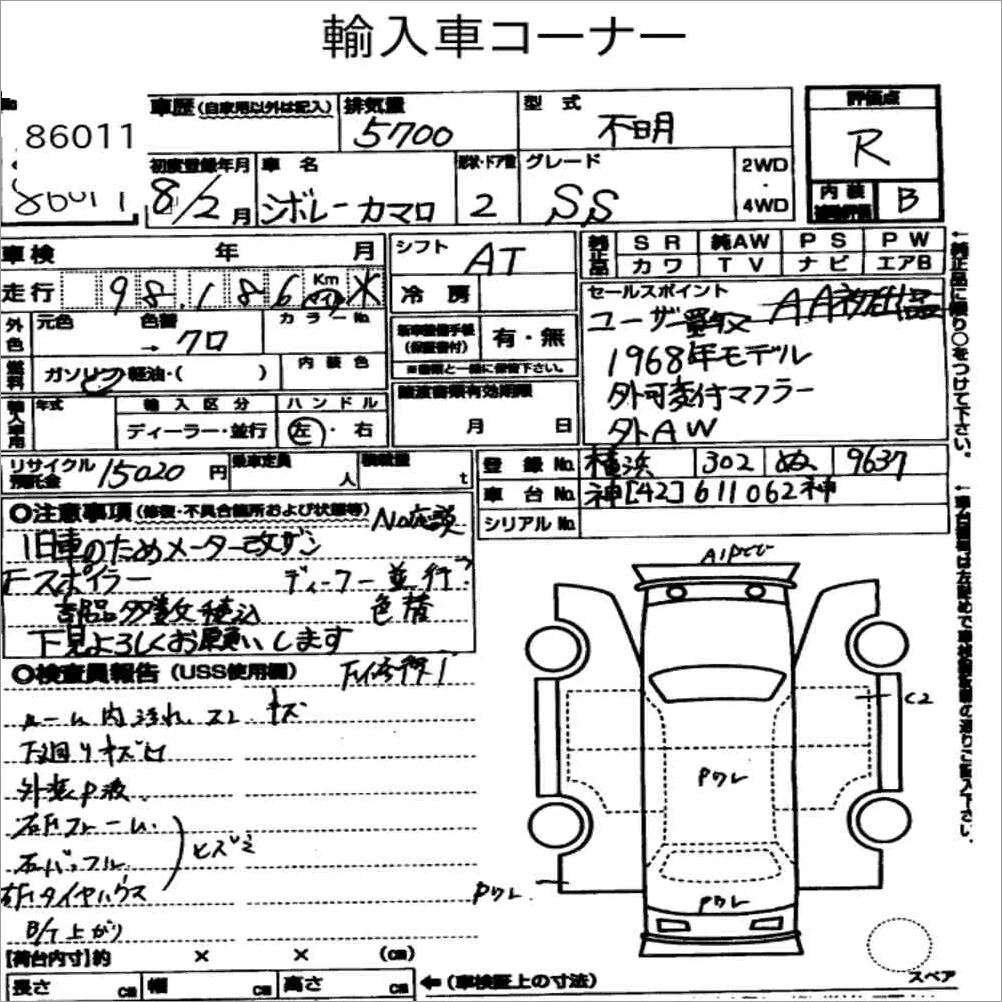 輸入車コーナー
No
86011
86011
車歴(自家用以外は記入)
排気量
5700
型式
不明
評価点
R
内装
補助評価
B
初度登録年月
8/2月
車名
シボレー カマロ
形状・ドア数
2
グレード
SS
2WD
・
4WD
車検 年 月
走行 98,186 Km マイル
シフト
AT
冷房
純正品
SR 純AW PS PW
カワ TV ナビ エアB
←純正品に限り○をつけて下さい。
外色
元色 色替 カラーNo.
→クロ
燃料
ガソリン・軽油・( )
内装色
新車整備手帳
(保証書付)
有・無
※書類と一緒に保管下さい。
セールスポイント
ユーザー買取 AA初出品
1968年モデル
外可変付マフラー
外AW
輸入車用
年式
輸入区分
ディーラー・並行
ハンドル
左・右
譲渡書類有効期限
月 日
リサイクル
預託金
15020円
乗車定員
人
積載量
t
登録No. 横浜 302 ぬ 9637
車台No. 神[42]611062神
シリアルNo.
○注意事項(修復・不具合箇所および状態等)
旧車のためメーター改ザン
Fスポイラー ディーラー並行?
色替
下見よろしくお願いします
○検査員報告(USS使用欄)
ルーム内汚れ、スレ キズ
下廻りキズ
外装P波
右Fフレーム
右Fタイヤハウス
B/T上がり
C2
Pワレ
Pワレ
Pワレ
【荷台内寸】約 × × (cm)
長さ cm 幅 cm 高さ cm
←(車検証上の寸法)
スペア